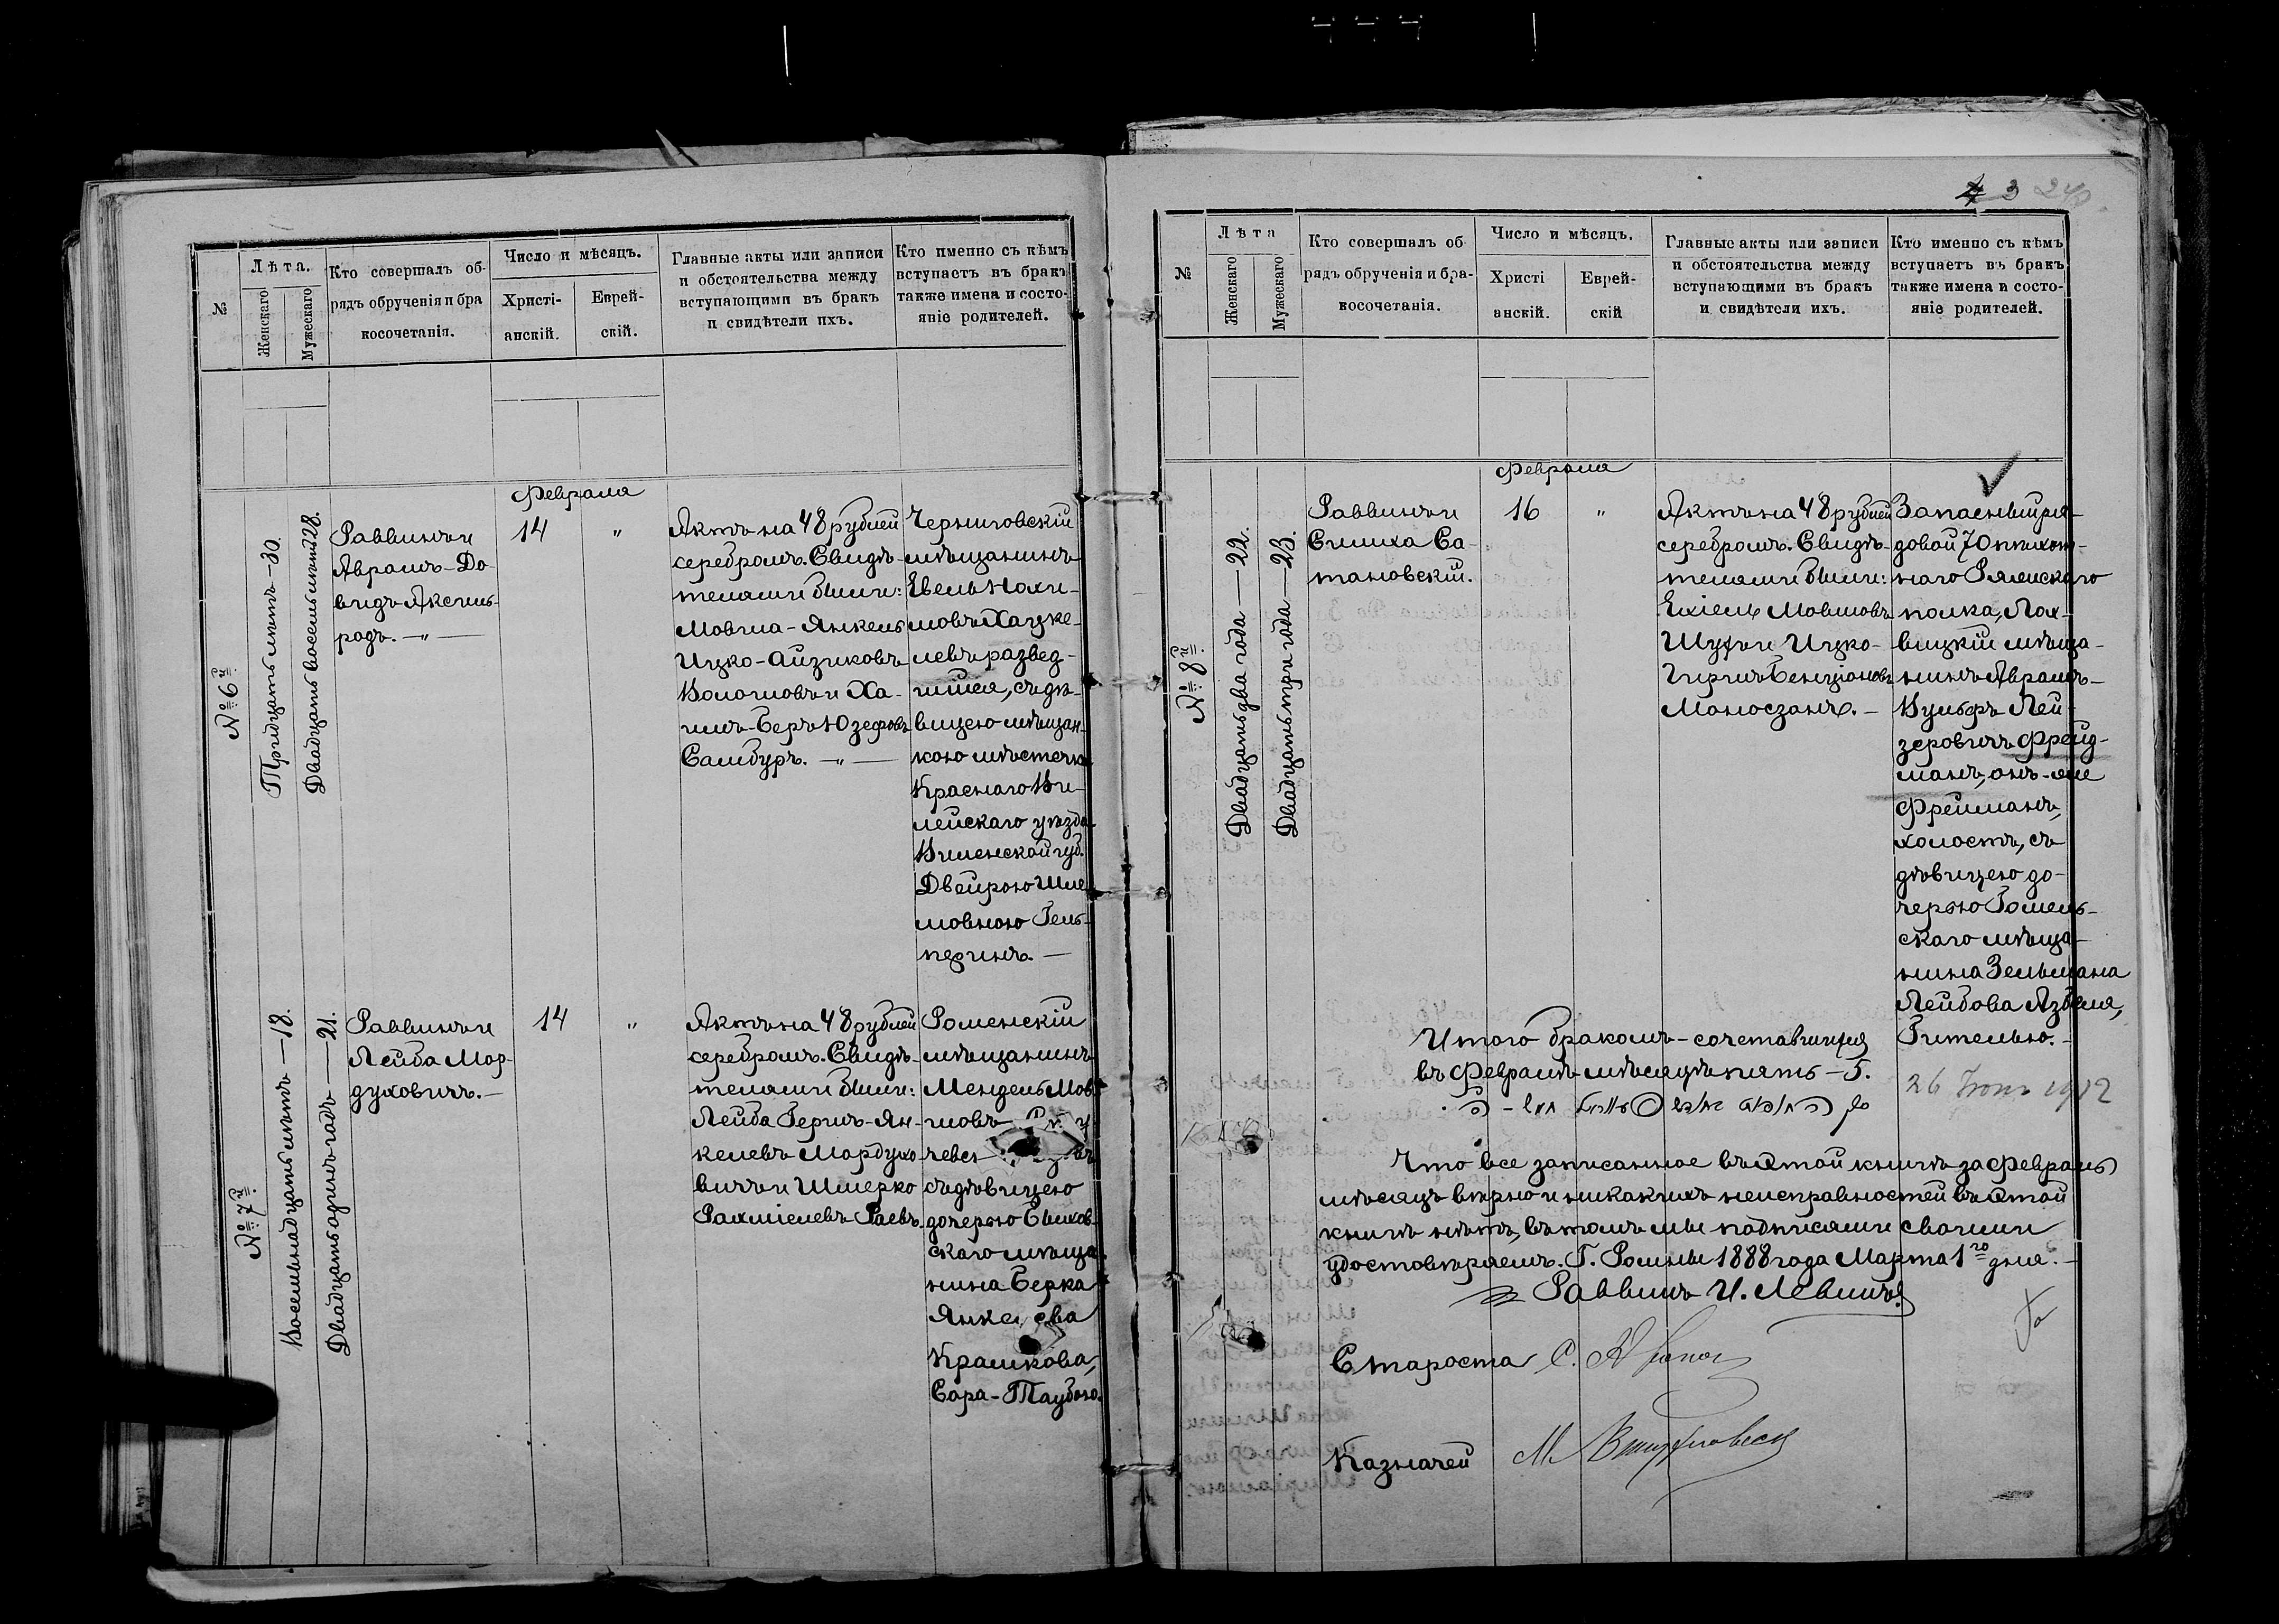 №
Лѣта.
Женскаго
Мужескаго
Кто совершалъ об-
рядъ обрученія и бра
косочетанія.
Число и мѣсяцъ.
Христі-
анскій.
Еврей-
скій.
Главные акты или записи
и обстоятельства между
вступающими въ бракъ
и свидѣтели ихъ.
Кто именно съ кѣмъ
вступаетъ въ бракъ
также имена и состо-
яніе родителей.
№ 6й
Тридцать лѣтъ — 30.
Двадцать восемь лѣтъ 28.
Раввинъ и
Аврамъ-До-
видъ Аксель-
родъ. —„—
Февраля
14
„
Актъ на 48 рублей
серебромъ. Свидѣ-
телями были:
Мовша-Янкель
Ицко-Айзиковъ
Волотовъ и Ха-
имъ-Беръ Юзефовъ
Самбуръ. —„—
Черниговскій
мѣщанинъ
Евель Нохи-
мовъ Хацке-
левъ развед-
шійся, съ дѣ-
вицею мѣщан-
кою мѣстечка
Краснаго Ви-
лейскаго уѣзда
Виленской губ.
Двейрою Шле-
мовною Гель-
перинъ. —
№ 7й
Восемьнадцать лѣтъ — 18.
Двадцать одинъ годъ — 21.
Раввинъ и
Лейба Мор-
духовичъ. —
14
„
Актъ на 48 рублей
серебромъ. Свидѣ-
телями были:
Лейба Гершъ-Ян-
келевъ Мордухо-
вичъ и Шмерко
Рахміелевъ Раевъ.
Роменскій
мѣщанинъ
Мендель Мов-
шовъ
съ дѣвицею
дочерью Быхов-
скаго мѣща-
нина Берка
Янкелева
Крамкова,
Сора-Таубою.
№
Лѣта
Женскаго
Мужескаго
Кто совершалъ об
рядъ обрученія и бра-
косочетанія.
Число и мѣсяцъ.
Христі
анскій.
Еврей-
скій
Главные акты или записи
и обстоятельства между
вступающими въ бракъ
и свидѣтели ихъ.
Кто именно съ кѣмъ
вступаетъ въ бракъ
также имена и состо-
яніе родителей.
№ 8й
Двадцать два года — 22.
Двадцать три года — 23.
Раввинъ и
Симха Са-
тановскій.
Февраля
16
„
Актъ на 48 рублей
серебромъ. Свидѣ-
телями были:
Ехіель Мовшовъ
Шуфъ и Ицко-
Гиршъ Бенціоновъ
Моносзонъ. —
Запасный ря-
довой 70 пѣхот-
наго Ряжскаго
полка, Лох-
вицкій мѣща-
нинъ Аврамъ-
Вульфъ Лей-
зеровичъ Фрейд-
манъ, онъ-же
Фрейманъ,
холостъ, съ
дѣвицею до-
черью Гомель-
скаго мѣща-
нина Зельмана
Лейбова Азбеля,
Гителью. —
Итого бракомъ-сочетавшихся
въ Февралѣ мѣсяцѣ пять — 5.
26 1912
Что все записанное въ этой книгѣ за Февраль
мѣсяцъ вѣрно и никакихъ неисправностей въ этой
книгѣ нѣтъ, въ томъ мы подписями своими
удостовѣряемъ. Г. Ромны 1888 года Марта 1го дня. —
Раввинъ И. Левинъ
Староста С.
Казначей М.